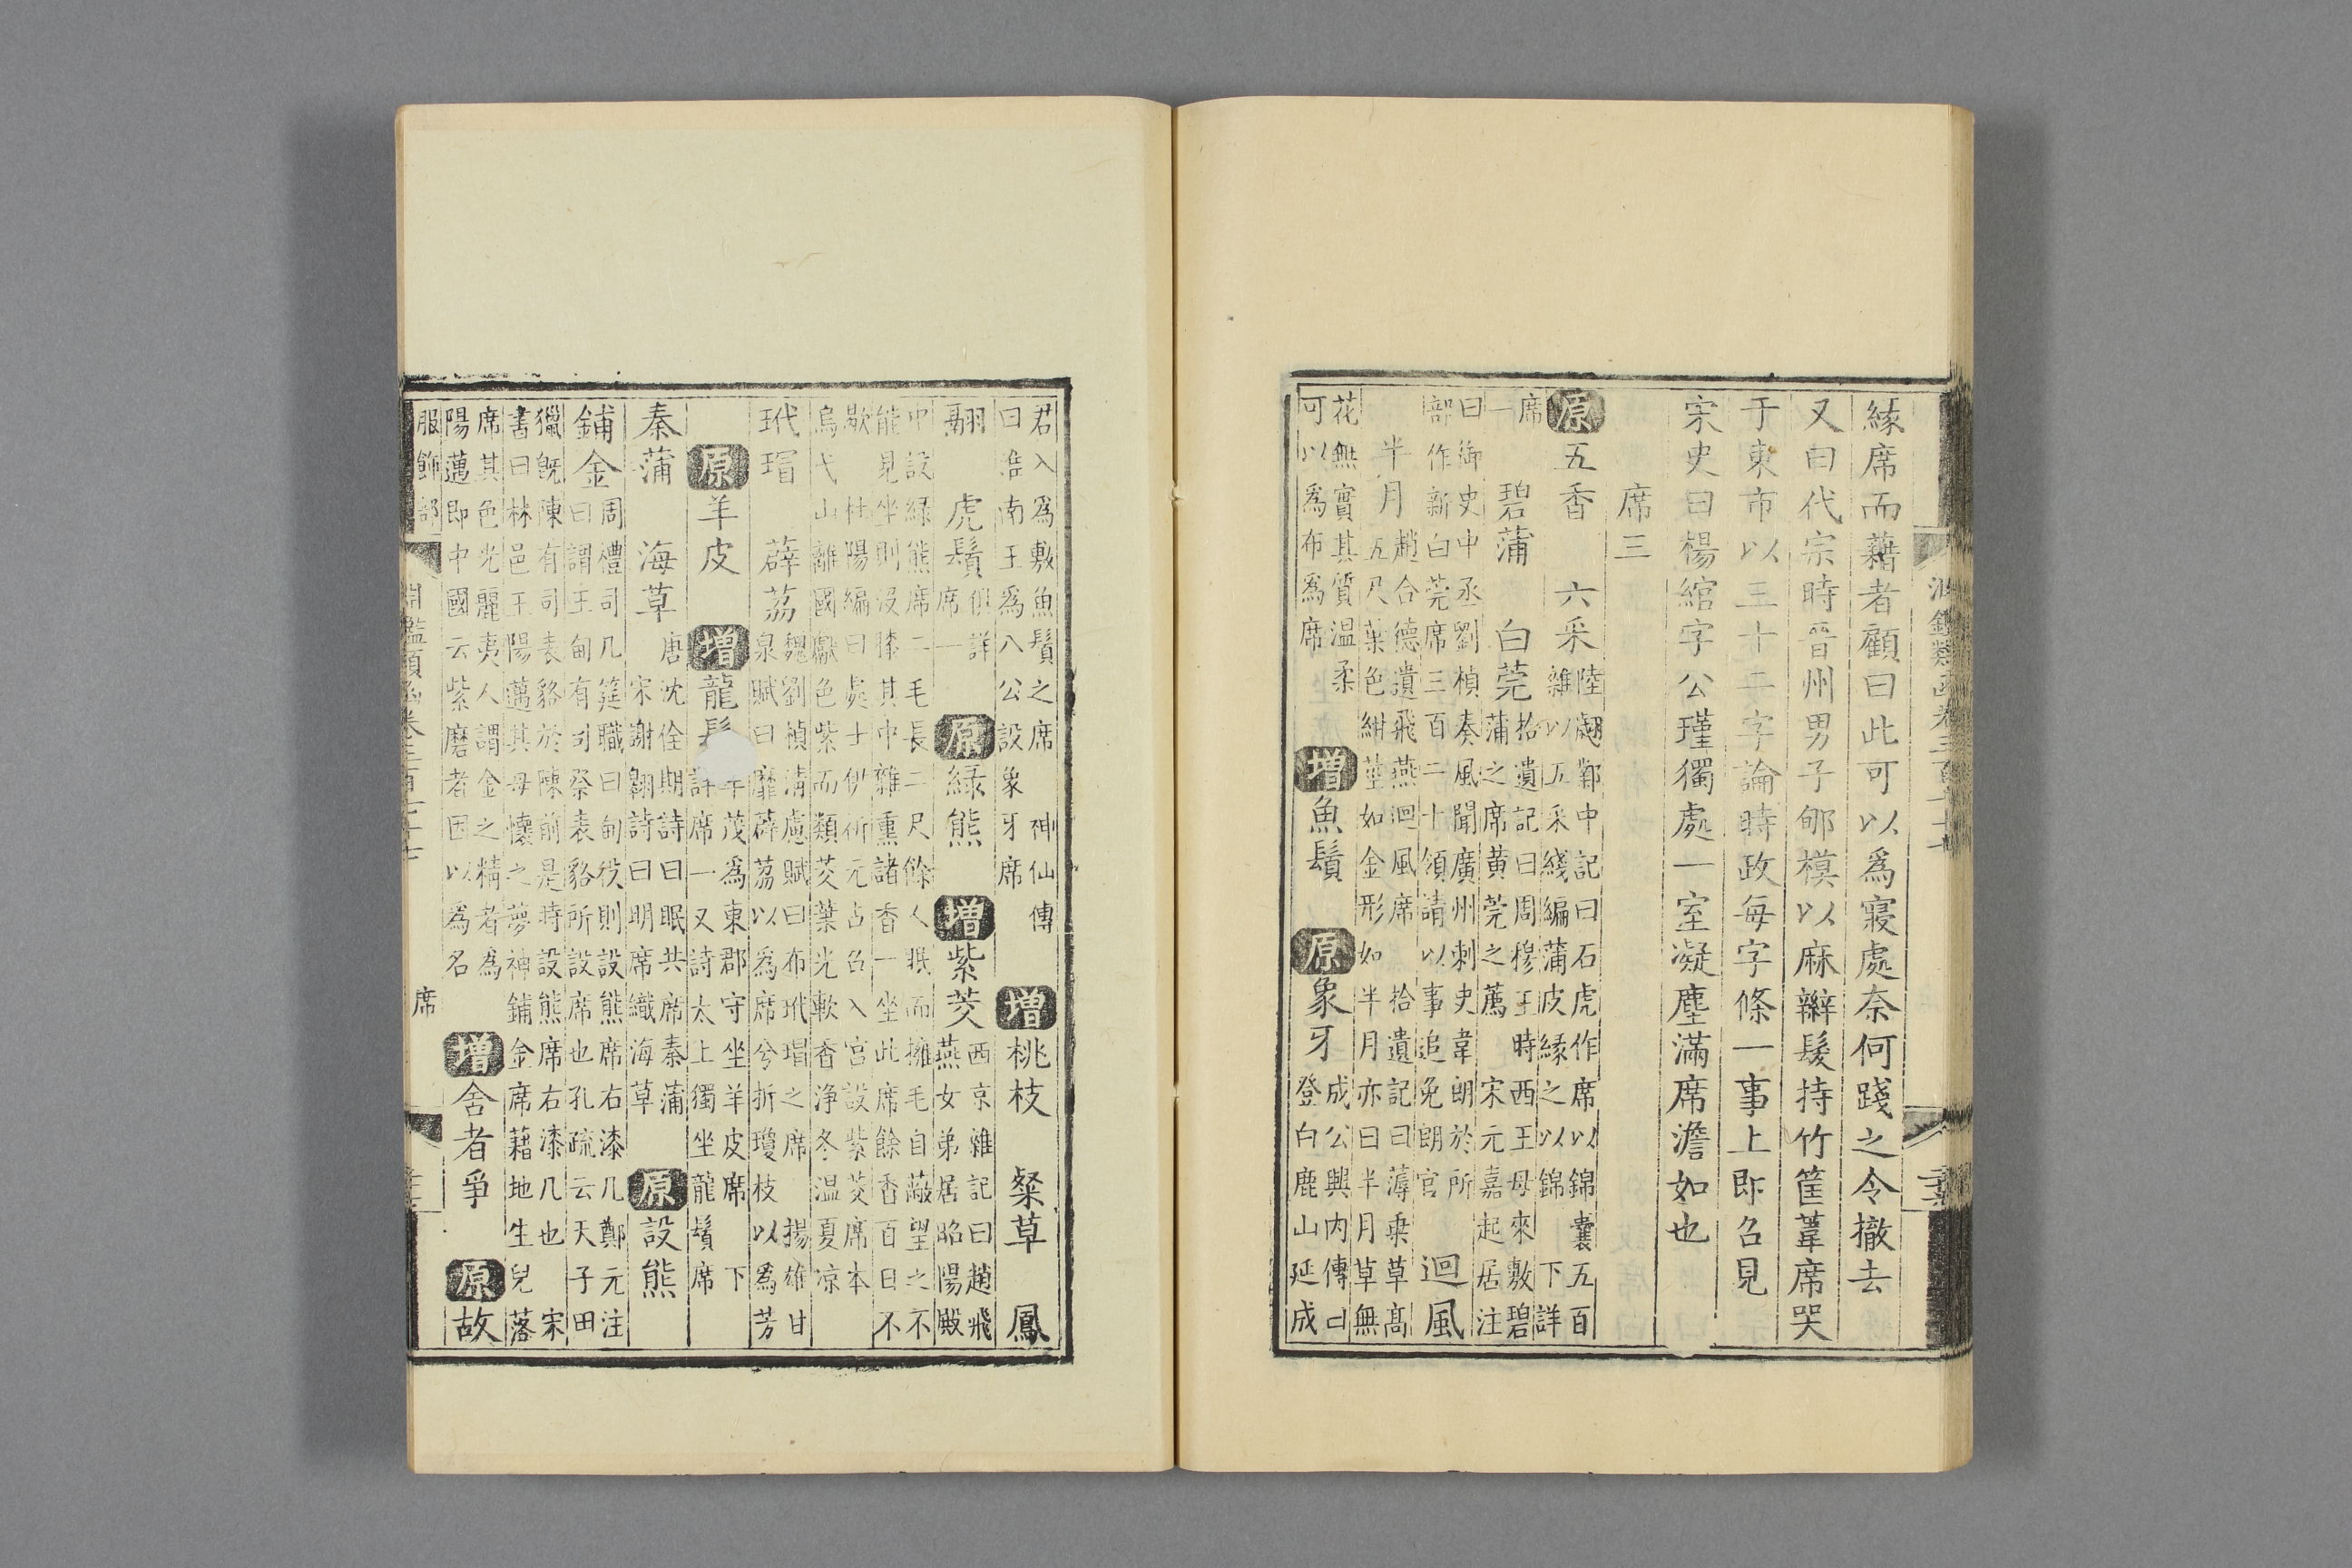 緣席而藉者顧曰此可以爲寢處奈何踐之令撤去
又曰代宗時晉州男子郇模以麻辮髮持竹筐葦席哭
于東市以三十二字論時政每字條一事上卽召見
宋史曰楊綰字公瑾獨處一室凝塵滿席澹如也
席三
原五香 六采陸翽鄴中記曰石虎作席以錦囊五百
雜以五采綫編蒲皮緣之以錦 下詳
席
一 碧蒲 白莞拾遺記曰周穆王時西王母來敷碧
蒲之席黄莞之薦 宋元嘉起居注
曰御史中丞劉楨奏風聞廣州刺史韋朗於所
部作新白莞席三百二十領請以事追免朗官 迴風
半月趙合德遺飛燕迴風席 拾遺記曰薄乗草髙
五尺葉色紺莖如金形如半月亦曰半月草無
花無實其質温柔
可以爲布爲席 增魚鬚 原象牙成公興内傳曰
登白鹿山延成
君入爲敷魚鬚之席 神仙傳
曰淮南王爲八公設象牙席 增桃枝 粲草 鳳
翮 虎鬚俱詳
席一 原綠熊 增紫茭西京雜記曰趙飛
燕女弟居昭陽殿
中設綠熊席二毛長二尺餘人眠而擁毛自蔽望之不
能見坐則没膝其中雜熏諸香一坐此席餘香百日不
歇 杜陽編曰處士伊祈元召入宫設紫茭席本
烏弋山離國獻色紫而類茭葉光軟香浄冬温夏凉
玳瑁 薜荔魏劉楨清慮賦曰布玳瑁之席 揚雄甘
泉賦曰靡薜荔以爲席兮折瓊枝以爲芳
原羊皮 增龍鬚 茂爲東郡守坐羊皮席 下
詳席一 又詩太上獨坐龍鬚席
秦蒲 海草唐沈佺期詩曰眠共席秦蒲
宋謝翺詩曰明席織海草 原設熊
鋪金周禮司几筵職曰甸役則設熊席右漆几鄭元注
曰謂王甸有司祭表貉所設席也孔疏云天子田
獵旣陳有司表貉於陳前是時設熊席右漆几也 宋
書曰林邑王陽邁其母懷之夢神鋪金席藉地生兒落
席其色光麗夷人謂金之精者爲
陽邁卽中國云紫磨者因以爲名 增舍者爭 原故
服飾部 席